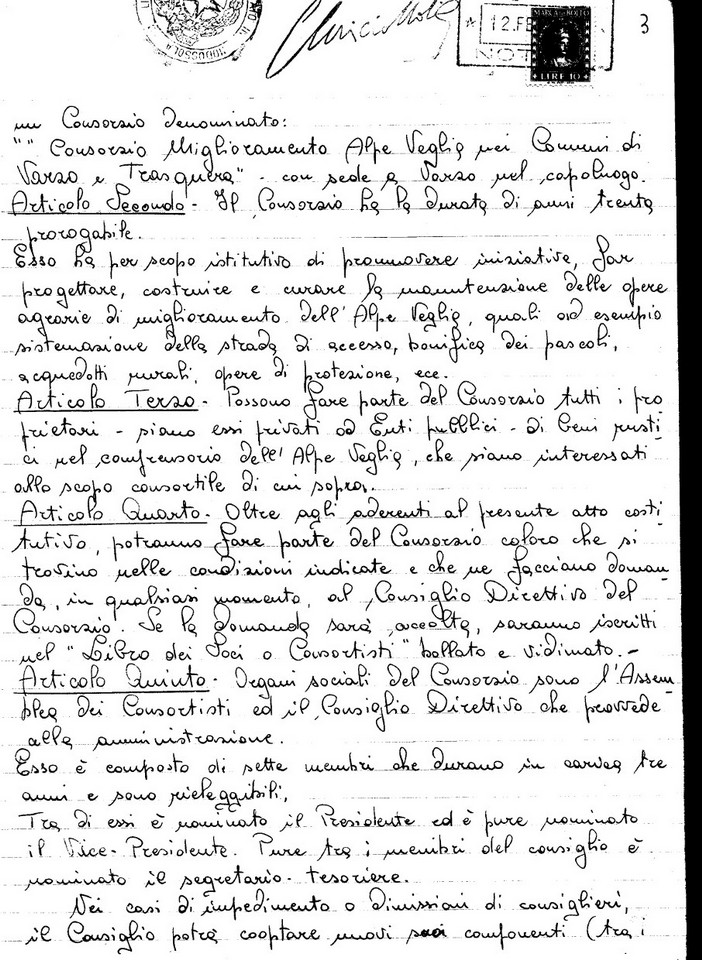 3
12.FE
MARCA DA BOLLO
LIRE 10
NOT
DOMODOSSOLA
un Consorzio denominato:
"" Consorzio Miglioramento Alpe Veglia nei Comuni di
Varzo e Trasquera" - con sede a Varzo nel capoluogo.
Articolo Secondo - Il Consorzio ha la durata di anni trenta
prorogabile.
Esso ha per scopo istitutivo di promuovere iniziative, far
progettare, costruire e curare la manutenzione delle opere
agrarie di miglioramento dell'Alpe Veglia, quali ad esempio
sistemazione della strada di accesso, bonifica dei pascoli,
acquedotti rurali, opere di protezione, ecc.
Articolo Terzo - Possono fare parte del Consorzio tutti i pro
prietari - siano essi privati od Enti pubblici - di beni rusti
ci nel comprensorio dell'Alpe Veglia, che siano interessati
allo scopo consortile di cui sopra.
Articolo Quarto - Oltre agli aderenti al presente atto costi
tutivo, potranno fare parte del Consorzio coloro che si
trovino nelle condizioni indicate e che ne facciano doman-
da, in qualsiasi momento, al Consiglio Direttivo del
Consorzio. Se la domanda sarà accolta, saranno iscritti
nel "Libro dei Soci o Consortisti" bollato e vidimato.-
Articolo Quinto - Organi sociali del Consorzio sono l'Assem
blea dei Consortisti ed il Consiglio Direttivo che provvede
alla amministrazione.
Esso è composto di sette membri che durano in carica tre
anni e sono rieleggibili,
Tra di essi è nominato il Presidente ed è pure nominato
il Vice-Presidente. Pure tra i membri del consiglio è
nominato il segretario-tesoriere.
Nei casi di impedimento o dimissioni di consiglieri,
il Consiglio potrà cooptare nuovi suoi componenti (tra i